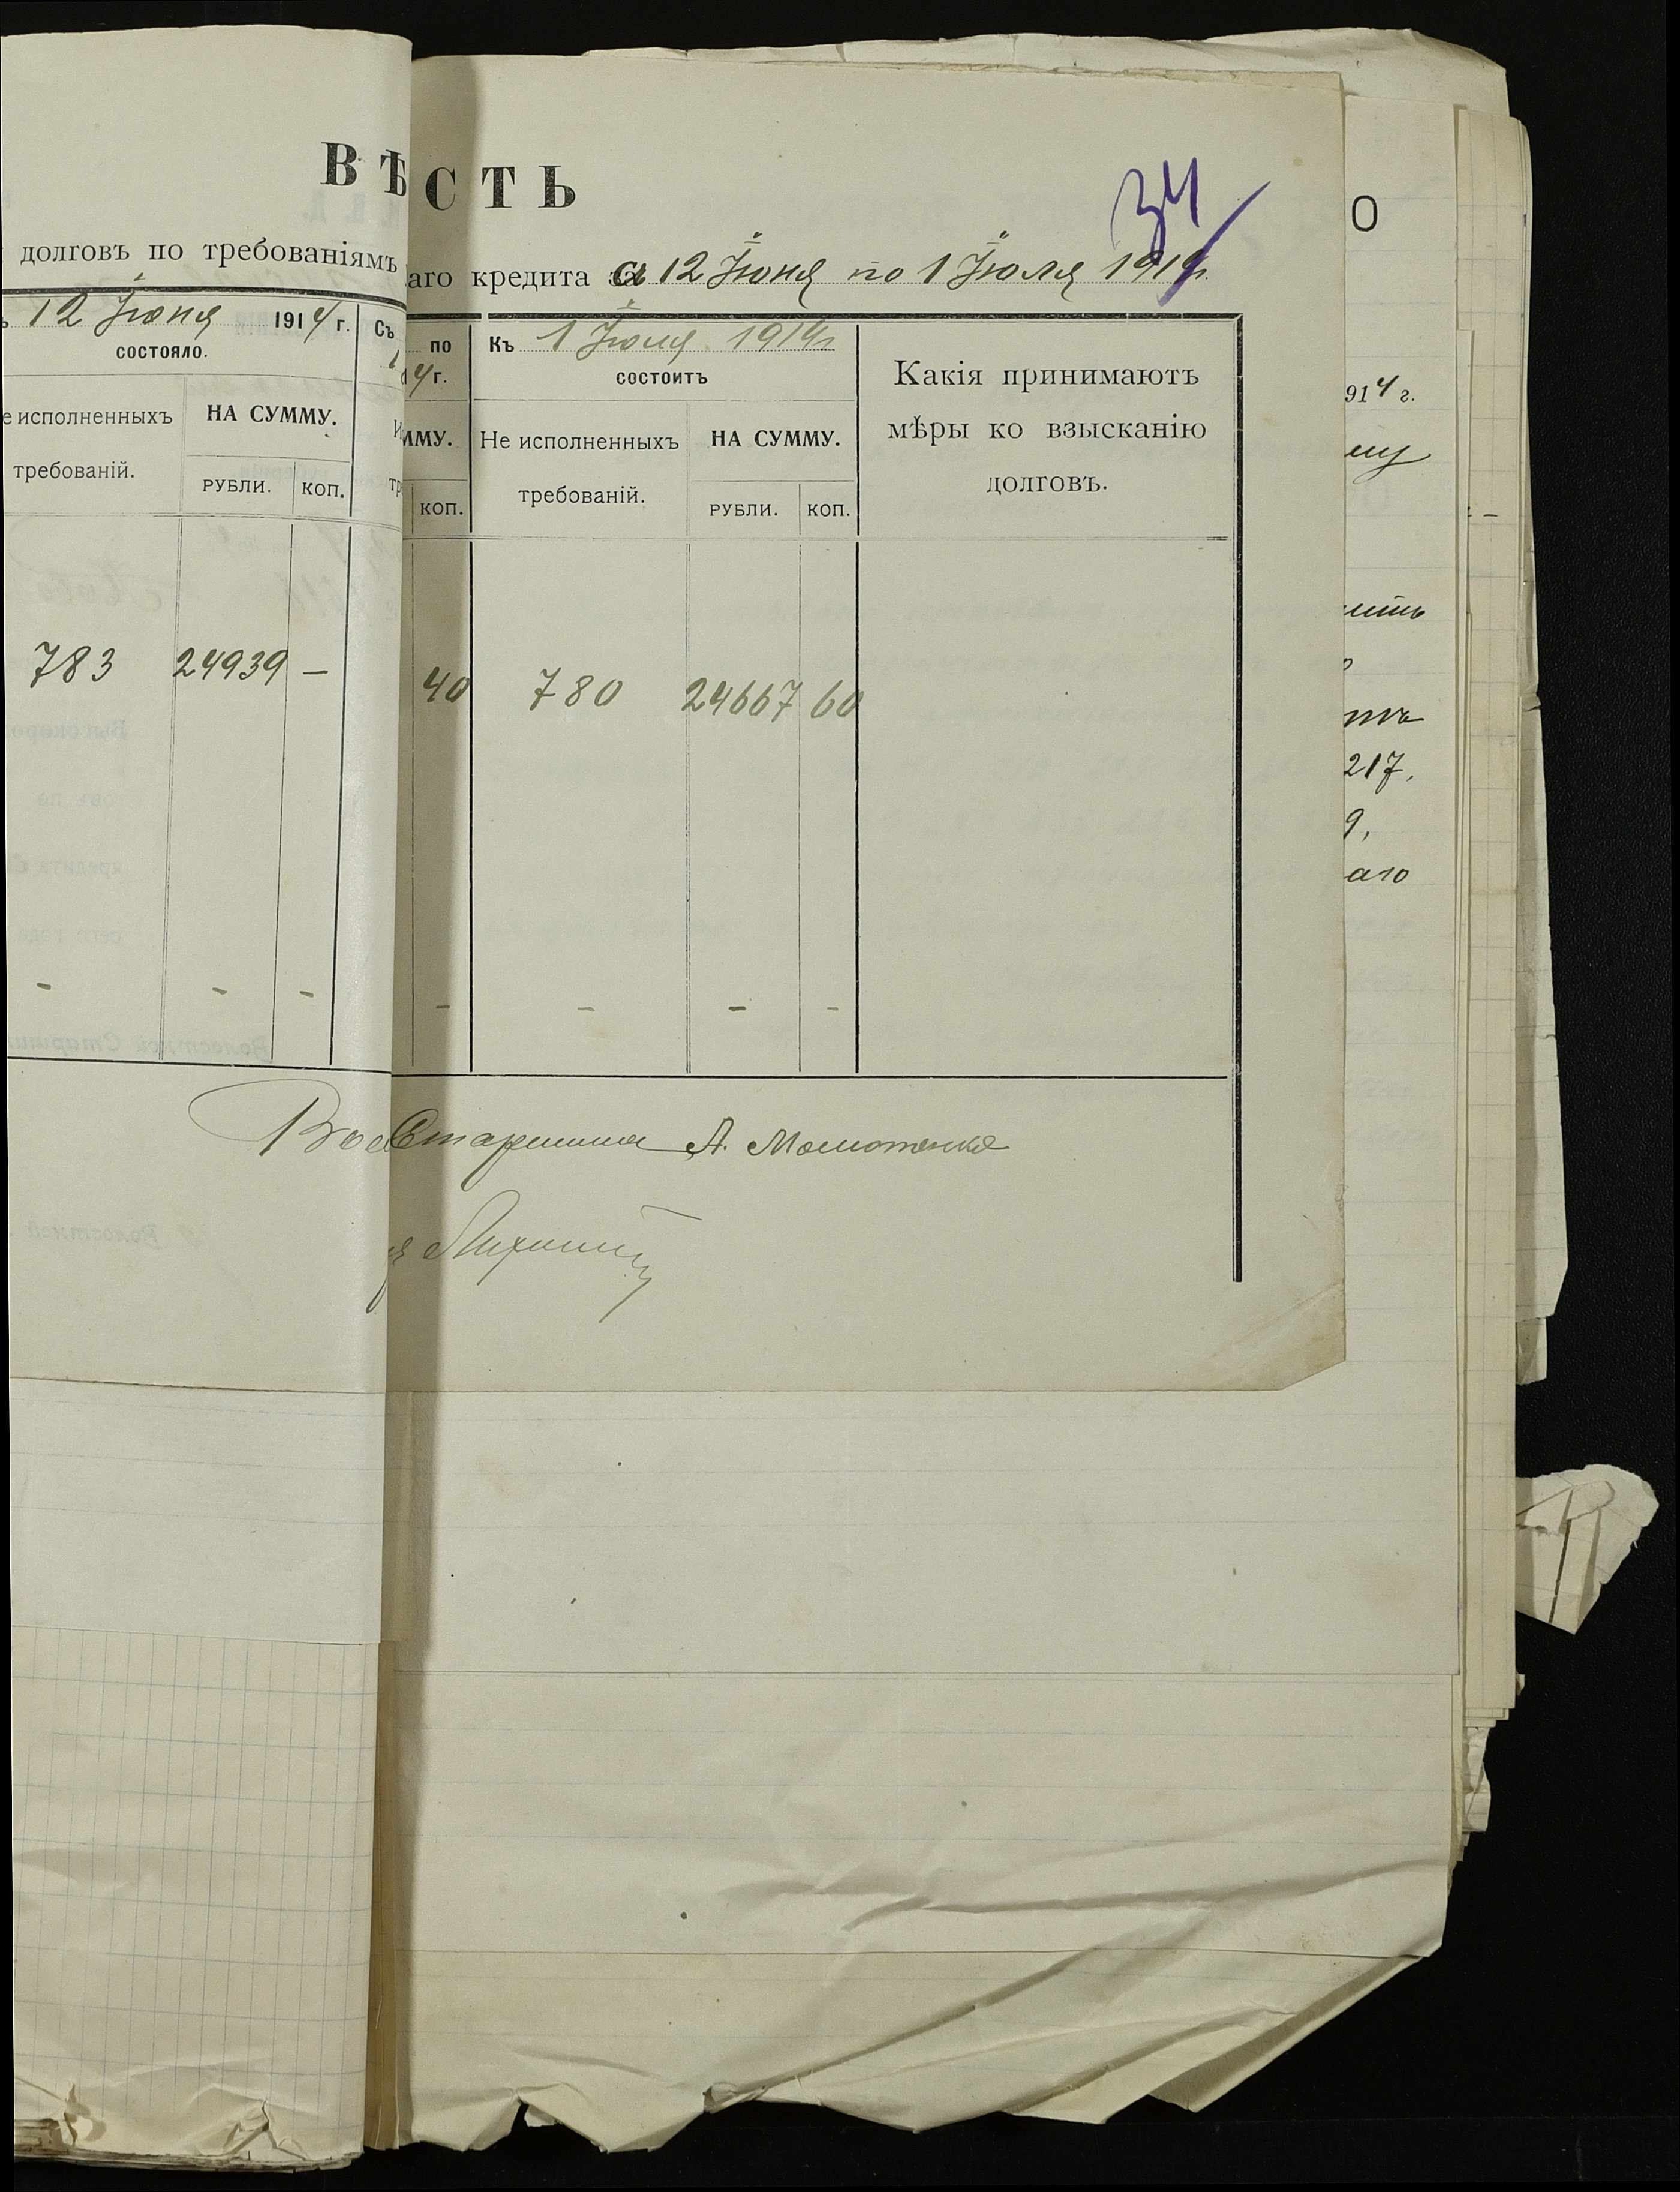 ВѢСТЬ
34
долговъ по требованіямъ
аго кредита за 12 Іюня по 1 Іюля 1914 г.
12 Іюня 1914 г.
состояло.
Съ
по
4 г.
Къ 1 Іюля 1914 г.
состоитъ
Какія принимаютъ
мѣры ко взысканію
долговъ.
е исполненныхъ
требованій.
НА СУММУ.
РУБЛИ. КОП.
ММУ.
КОП.
Не исполненныхъ
требованій.
НА СУММУ.
РУБЛИ. КОП.
783 24939 –
40 780 24667 60
– – –
– – – –
Вол Старшина А.
О
914 г.
217,
9,
аго